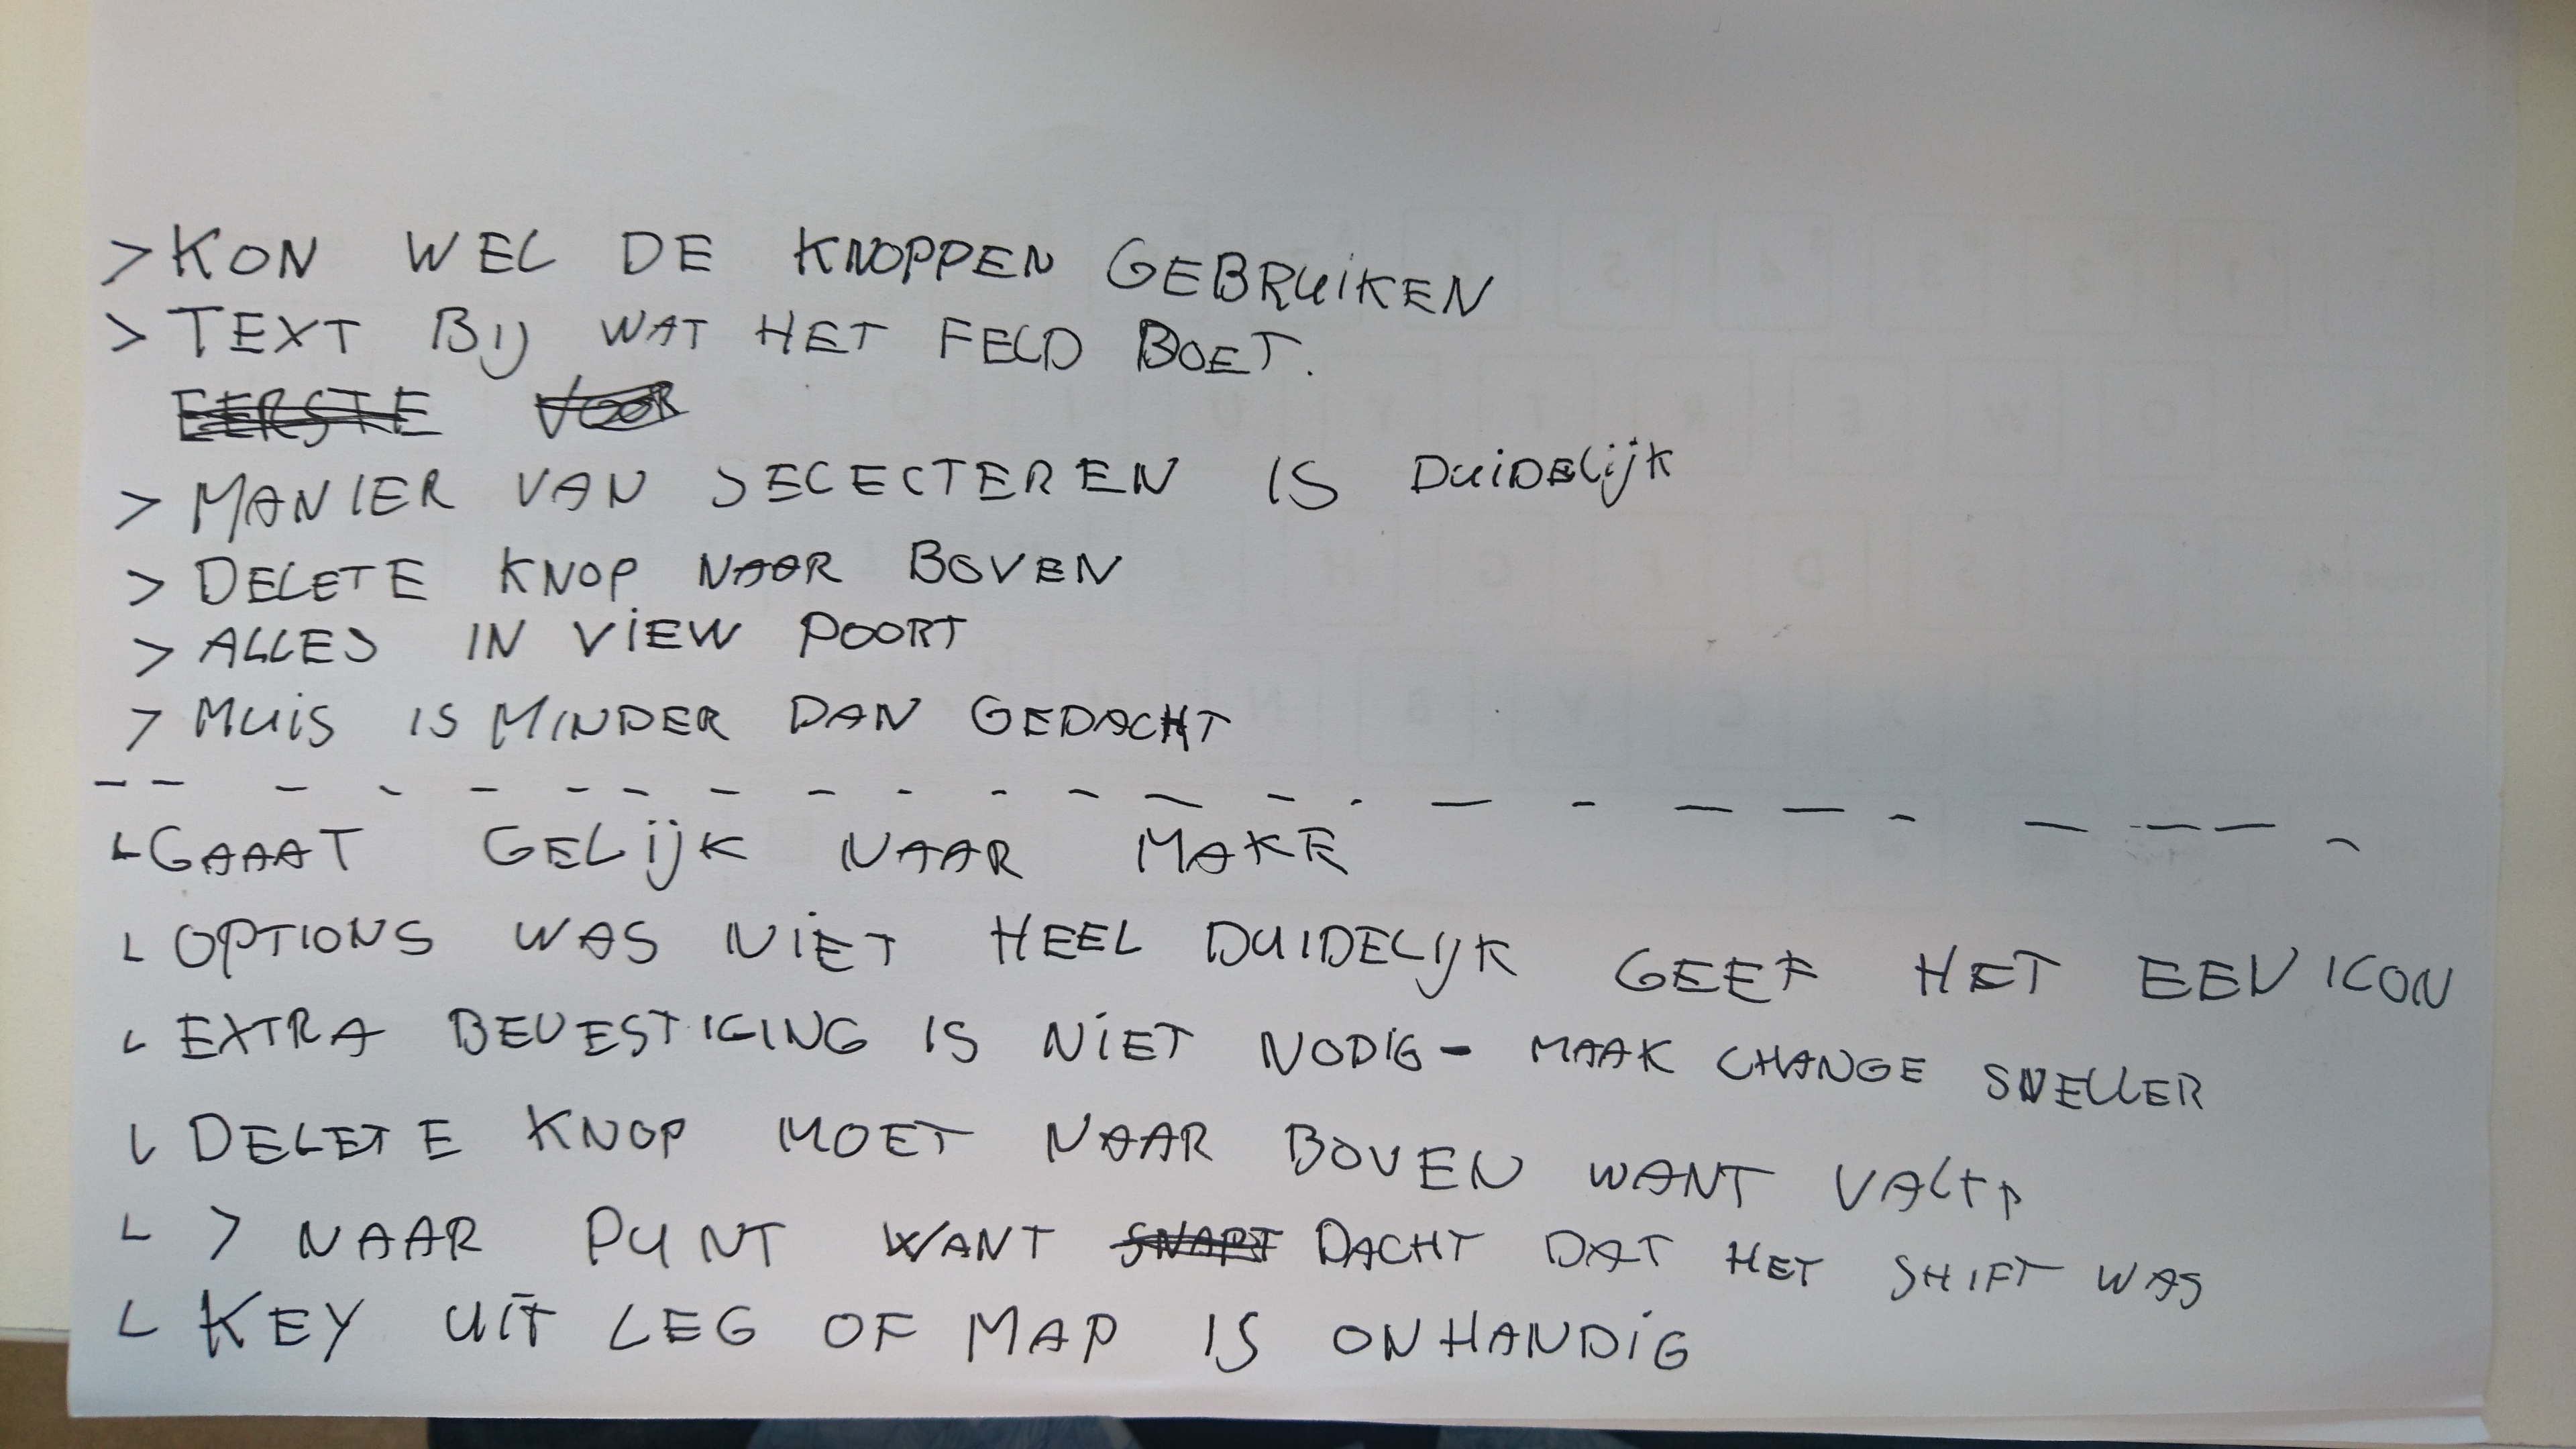 > KON WEL DE KNOPPEN GEBRUIKEN
> TEXT BIJ WAT HET FELD BOET.
EERSTE VOOR
> MANIER VAN SELECTEREN IS DUIDELIJK
> DELETE KNOP NAAR BOVEN
> ALLES IN VIEW POORT
> MUIS IS MINDER DAN GEDACHT
GAAAT GELIJK NAAR MAKE
OPTIONS WAS NIET HEEL DUIDELIJK GEEF HET EEN ICON
EXTRA BEVESTIGING IS NIET NODIG - MAAK CHANGE SNELLER
DELETE KNOP MOET NAAR BOVEN WANT
> NAAR PUNT WANT DACHT DAT HET SHIFT WAS
KEY UIT LEG OF MAP IS ONHANDIG